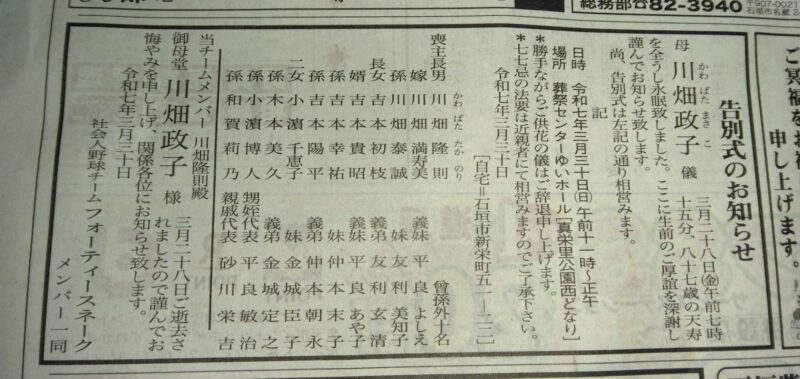 総務部☎82-3940
〒907-0021
石垣市名蔵2
ご冥福をお
申し上げます。
告別式のお知らせ
母 川畑政子 儀
かわ ばた まさ こ
三月二十八日(金)午前七時
十五分、八十七歳の天寿
を全うし永眠致しました。ここに生前のご厚誼を深謝し
謹んでお知らせ致します。
尚、告別式は左記の通り相営みます。
記
日時 令和七年三月三十日(日)午前十一時〜正午
場所 葬祭センターゆいホール[真栄里公園西どなり]
*勝手ながらご供花の儀はご辞退申し上げます。
*七七忌の法要は近親者にて相営みますのでご了承下さい。
令和七年三月三十日
[自宅=石垣市新栄町五一―二二]
かわ ばた たか のり
喪主長男 川畑隆則
嫁 川畑満寿美
孫 川畑泰誠
長女 吉本初枝
婿 吉本貴昭
孫 吉本幸祐
孫 吉本陽平
二女 小濵千恵子
孫 木本美久
孫 小濵博人
孫 和賀莉乃
曾孫外十名
義妹 平良よしえ
妹 友利美知子
義弟 友利玄清
義妹 平良あや子
妹 仲本末子
義弟 仲本朝永
妹 金城臣子
義弟 金城定之
甥姪代表 平良敏治
親戚代表 砂川栄吉
当チームメンバー 川畑隆則殿
御母堂 川畑政子 様
三月二十八日ご逝去さ
れましたので謹んでお
悔やみを申し上げ、関係各位にお知らせ致します。
令和七年三月三十日
社会人野球チームフォーティースネーク
メンバー一同